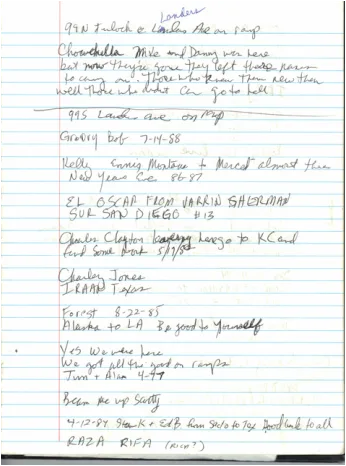 Landers
99N Turlock @ Landers Ave on ramp
Chowchilla Mike and Danny was here
but now they're gone they left there names
to carry on. Those who knew them new them
well those who didnt can go to hell
99S Landers ave on ramp
Groovy bob 7-14-88
Kelly Ennis Montana to Merced almost there
New Years Eve 86-87
EL OSCAR FROM VARRIN SHERMAN
SUR SAN DIEGO #13
Charles Clayton leaving here go to KC and
find some work 5/7/85
Charley Jones
IRAAN Texas
Forest 8-22-85
Alaska to LA Be good to yourself
Yes We were here
We got all the good on ramps
Jim + Alan 4-77
Beam me up Scotty
4-12-84 Steve K + Ed B from Sac to Tex Good luck to all
RAZA RIFA (RICH?)